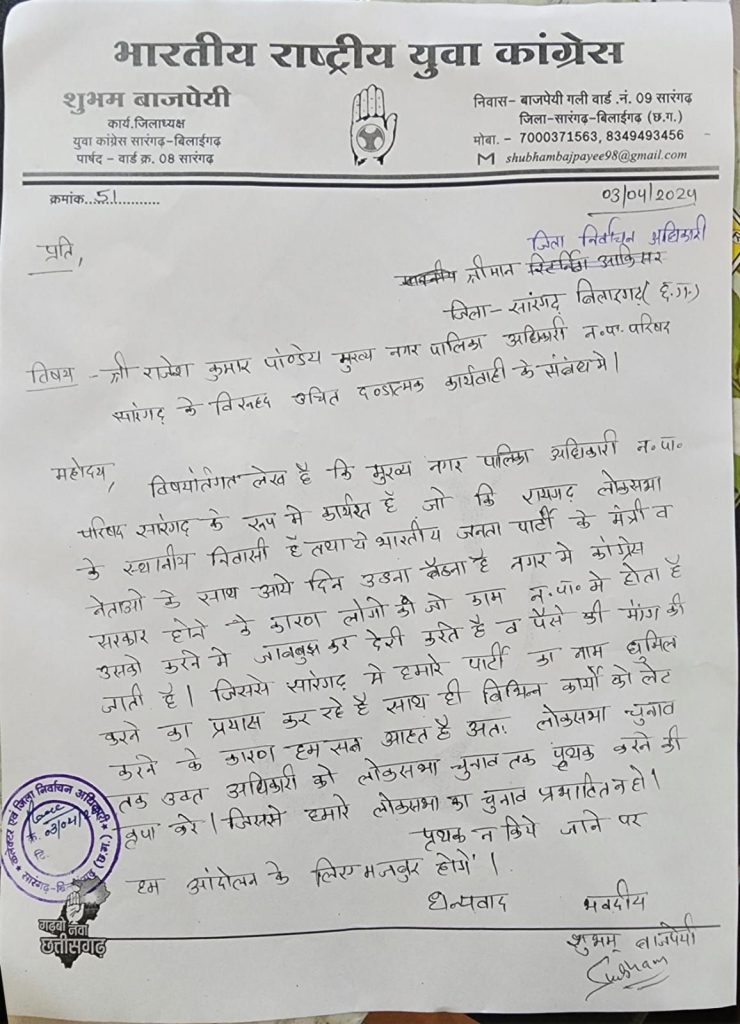 भारतीय राष्ट्रीय युवा कांग्रेस
शुभम बाजपेयी
कार्य.जिलाध्यक्ष
युवा कांग्रेस सारंगढ़-बिलाईगढ़
पार्षद - वार्ड क्र. 08 सारंगढ़
निवास- बाजपेयी गली वार्ड .नं. 09 सारंगढ़
जिला-सारंगढ़-बिलाईगढ़ (छ.ग.)
मोबा. - 7000371563, 8349493456
shubhambajpayee98@gmail.com
क्रमांक...51...........
03/04/2024
प्रति,
जिला निर्वाचन अधिकारी
श्रीमान रिटर्निंग आफिसर
जिला- सारंगढ़ बिलाईगढ़ (छ.ग.)
विषय - श्री राजेश कुमार पाण्डेय मुख्य नगर पालिका अधिकारी न.पा.परिषद
सारंगढ़ के विरूद्ध उचित दण्डात्मक कार्यवाही के संबंध मे।
महोदय,
विषयांर्तगत लेख है कि मुख्य नगर पालिका अधिकारी न.पा.
परिषद सारंगढ़ के रूप मे कार्यरत है जो कि रायगढ़ लोकसभा
के स्थानीय निवासी है तथा ये भारतीय जनता पार्टी के मंत्री व
नेताओ के साथ आये दिन उठना बैठना है नगर मे कांग्रेस
सरकार होने के कारण लोगो की जो काम न.पा. मे होता है
उसको करने मे जानबुझ कर देरी करते है व पैसे की मांग की
जाती है। जिससे सारंगढ़ मे हमारे पार्टी का नाम धुमिल
करने का प्रयास कर रहे है साथ ही विभिन्न कार्यो को लेट
करने के कारण हम सब आहत है अतः लोकसभा चुनाव
तक उक्त अधिकारी को लोकसभा चुनाव तक पृथक करने की
कृपा करे। जिससे हमारे लोकसभा का चुनाव प्रभावित न हो।
पृथक न किये जाने पर
हम आंदोलन के लिए मजबुर होगें।
धन्यवाद
भवदीय
शुभम् बाजपेयी
Shubham
कलेक्टर एवं जिला निर्वाचन अधिकारी
03/04/2
सारंगढ़-बिलाईगढ़ (छ.ग.)
गढ़बो नवा
छत्तीसगढ़